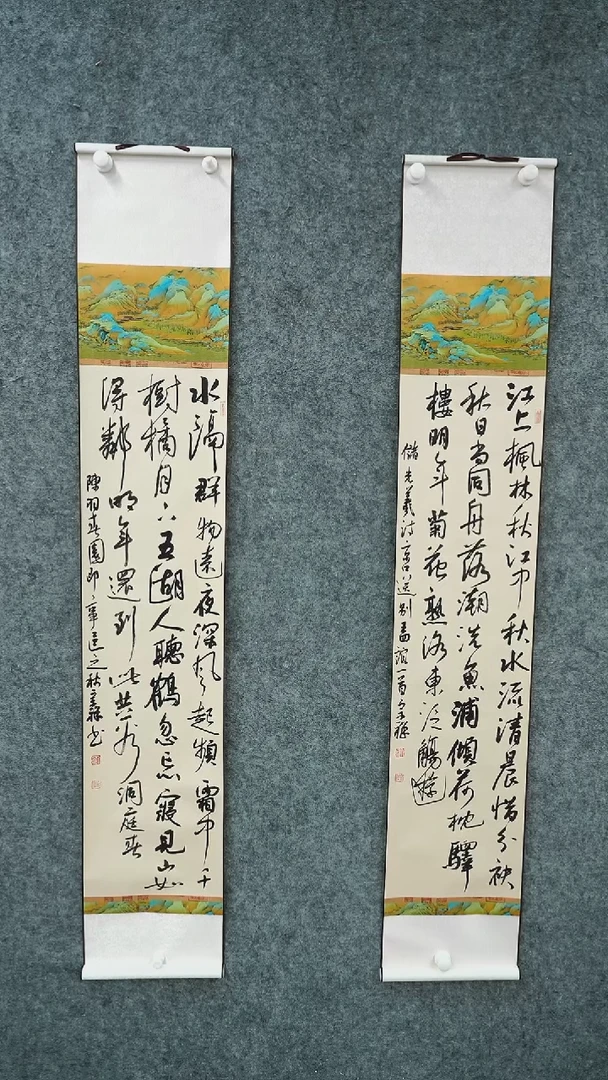 江上楓林秋江中秋水流清晨惜分袂
秋日尚同舟落潮洗魚浦傾荷枕驛
樓明年菊花熟洛東泛觴遊
儲光羲詩京口送別王四誼一首
水隔群物遠夜深風起頻霜中千
樹橘月下五湖人聽鶴忽忘寢見山如
得鄰明年還到此共看洞庭春
陳羽春園即事